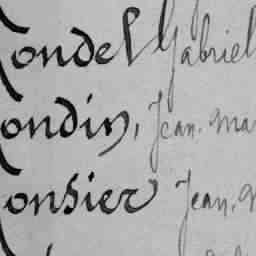 Rondel Gabriel
Rondin, Jean. Ma
Ronsier Jean. M